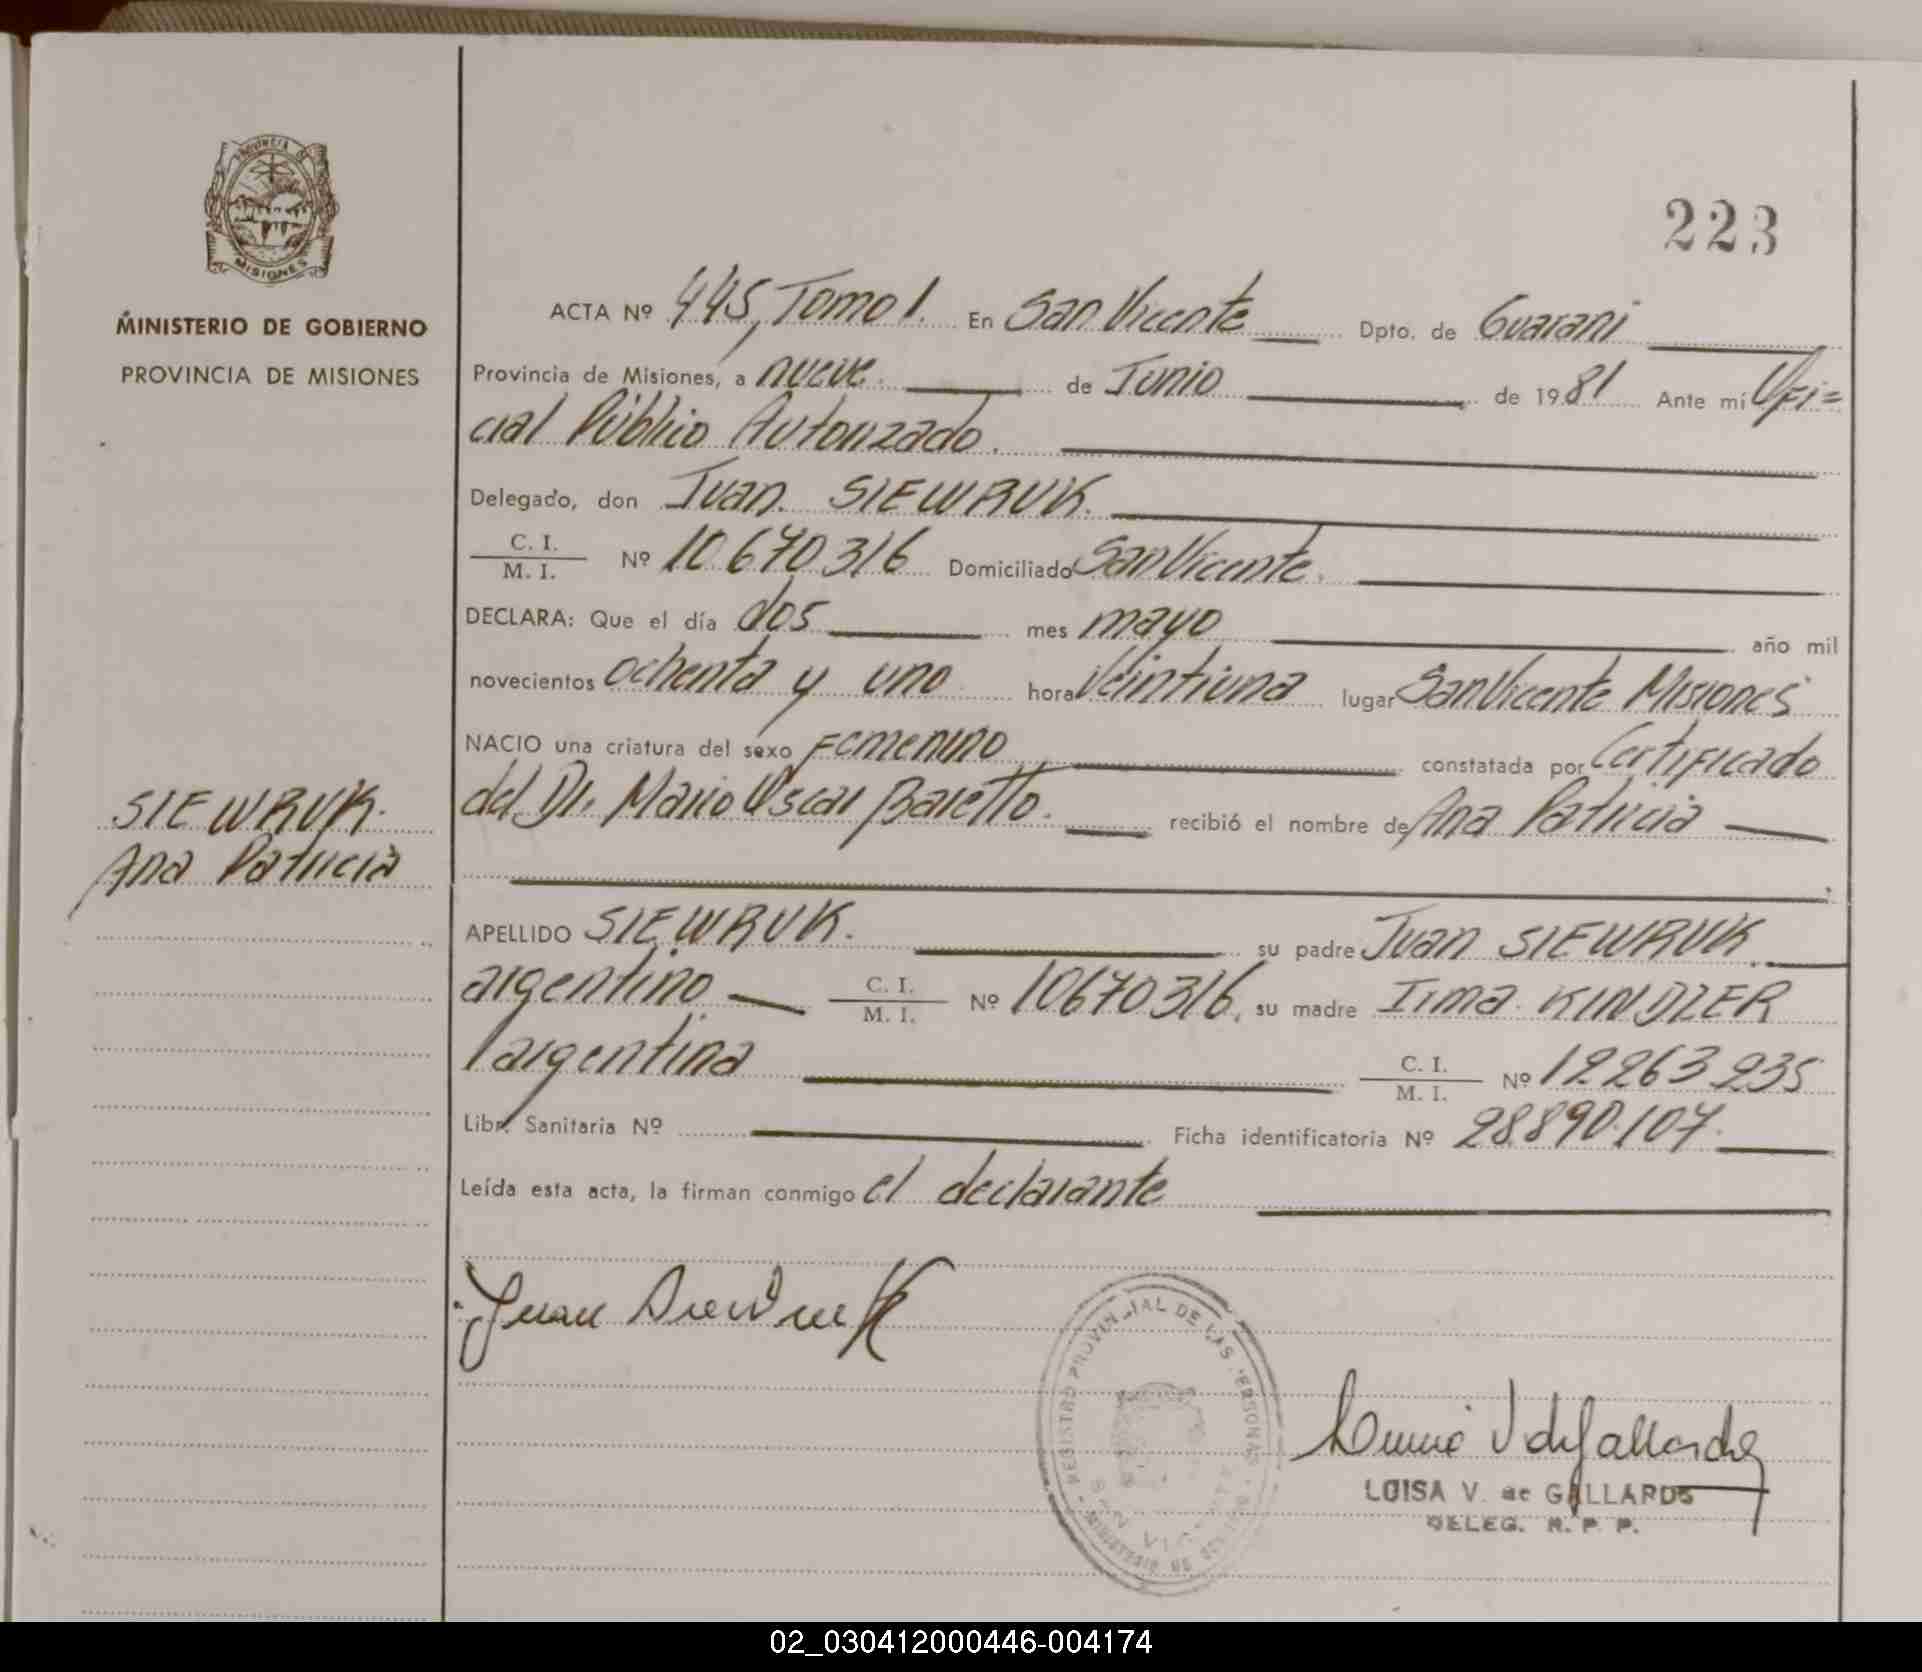 PROVINCIA DE
MISIONES
MINISTERIO DE GOBIERNO
PROVINCIA DE MISIONES
SIEWRUK.
Ana Patricia
223
ACTA Nº 445, Tomo 1. En San Vicente Dpto. de Guarani
Provincia de Misiones, a nueve. de Junio de 1981 Ante mí Ofi=
cial Público Autorizado.
Delegado, don Juan. SIEWRUK.
C. I.
M. I.
Nº 10.670.316 Domiciliado San Vicente.
DECLARA: Que el día dos mes mayo año mil
novecientos ochenta y uno hora veintiuna lugar San Vicente Misiones
NACIO una criatura del sexo Femenino constatada por Certificado
del Dr. Mario Oscar Baretto. recibió el nombre de Ana Patricia
APELLIDO SIEWRUK. su padre Juan SIEWRUK.
argentino. C. I.
M. I.
Nº 10670316, su madre Irma KINDZER
argentina C. I.
M. I.
Nº 12263235
Libr. Sanitaria Nº Ficha identificatoria Nº 28.890.107.
Leída esta acta, la firman conmigo el declarante
Juan Siewruk
REGISTRO PROVINCIAL DE LAS PERSONAS
SAN VICENTE
MINISTERIO DE GOBIERNO
LUISA V. de GALLARDO
DELEG. R. P. P.
02_030412000446-004174